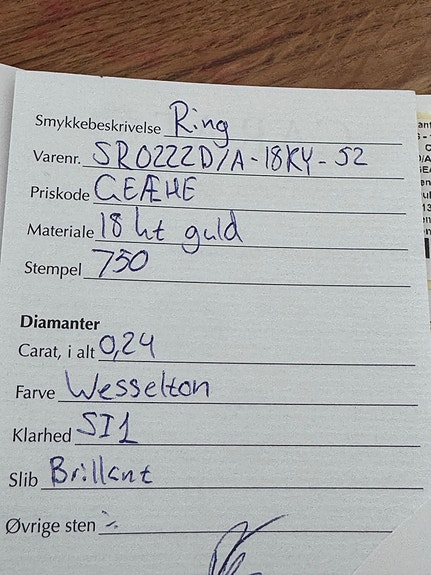 Smykkebeskrivelse Ring
Varenr. SR0222D/A-18KY-52
Priskode GEÆHE
Materiale 18 kt guld
Stempel 750
Diamanter
Carat, i alt 0,24
Farve Wesselton
Klarhed SI1
Slib Brillant
Øvrige sten ÷